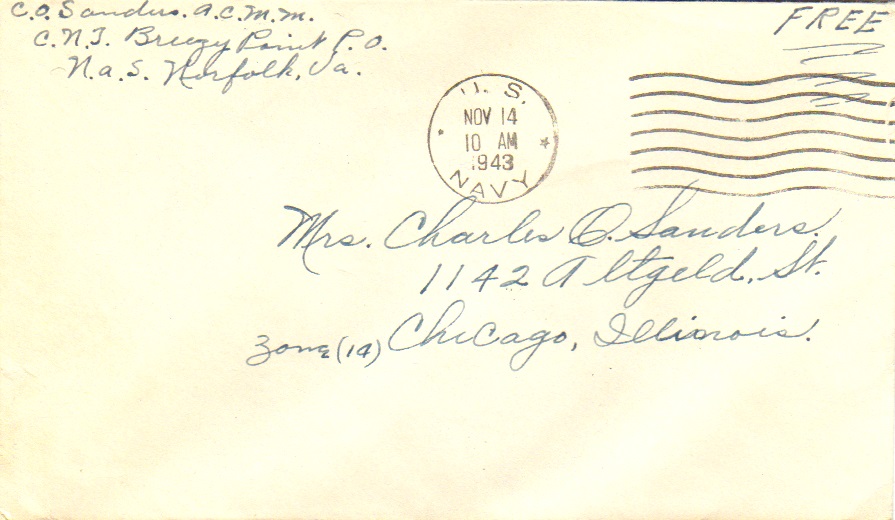 C.O. Sanders. A.C.M.M.
C.N.T. Breezy Point P.O.
N.A.S. Norfolk, Va.
FREE
U. S.
NOV 14
10 AM
1943
NAVY
Mrs. Charles O. Sanders.
1142 Altgeld, St.
Zone (14) Chicago, Illinois.